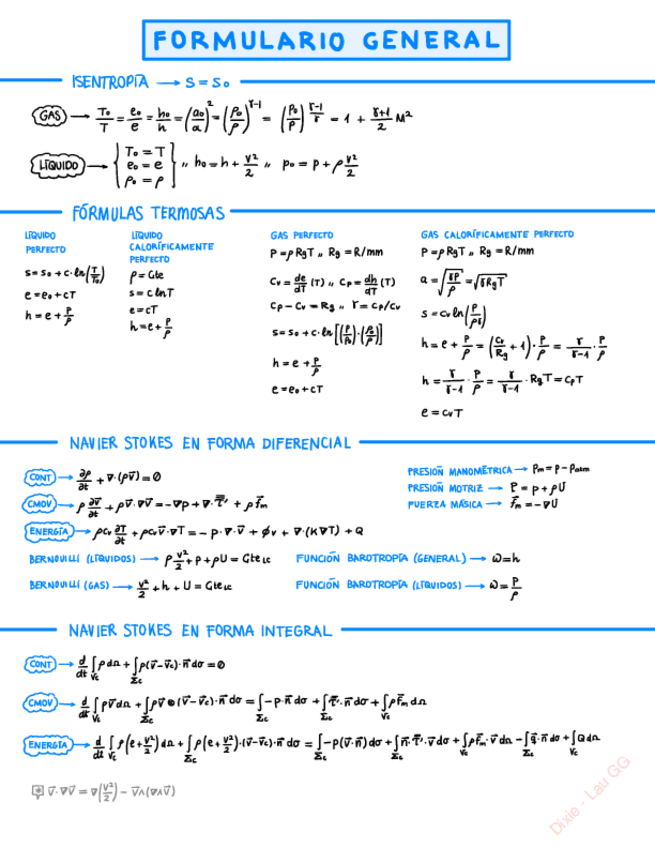 FORMULARIO GENERAL
ISENTROPÍA → S = S₀
GAS → T₀/T = e₀/e = h₀/h = (a₀/a)² = (ρ₀/ρ)^(γ-1) = (p₀/p)^((γ-1)/γ) = 1 + (γ+1)/2 M²
LÍQUIDO → { T₀ = T
e₀ = e
ρ₀ = ρ } ,, h₀ = h + v²/2 ,, p₀ = p + ρ v²/2
FÓRMULAS TERMOSAS
LÍQUIDO PERFECTO
S = S₀ + c·ln(T/T₀)
e = e₀ + cT
h = e + p/ρ
LÍQUIDO CALORÍFICAMENTE PERFECTO
ρ = Cte
s = c lnT
e = cT
h = e + p/ρ
GAS PERFECTO
P = ρ RgT ,, Rg = R/mm
Cv = de/dT (T) ,, Cp = dh/dT (T)
Cp - Cv = Rg ,, γ = Cp/Cv
S = S₀ + c·ln[(p/p₀)·(ρ₀/ρ)]
h = e + p/ρ
e = e₀ + cT
GAS CALORÍFICAMENTE PERFECTO
P = ρ RgT ,, Rg = R/mm
a = √(γP/ρ) = √(γRgT)
S = Cv ln(p/ργ)
h = e + p/ρ = (Cv/Rg + 1)·p/ρ = γ/(γ-1)·p/ρ
h = γ/(γ-1)·p/ρ = γ/(γ-1)·RgT = CpT
e = CvT
NAVIER STOKES EN FORMA DIFERENCIAL
CONT → ∂ρ/∂t + ∇·(ρv⃗) = 0
CMOV → ρ ∂v⃗/∂t + ρv⃗·∇v⃗ = -∇p + ∇·τ̿' + ρf⃗m
ENERGÍA → ρCv ∂T/∂t + ρCv v⃗·∇T = - p·∇·v⃗ + ϕv + ∇·(K∇T) + Q
PRESIÓN MANOMÉTRICA → Pm = P - Patm
PRESIÓN MOTRIZ → P = p + ρU
FUERZA MÁSICA → f⃗m = -∇U
BERNOUILLI (LÍQUIDOS) → ρ v²/2 + p + ρU = Cte LC
FUNCIÓN BAROTROPÍA (GENERAL) → ω = h
BERNOUILLI (GAS) → v²/2 + h + U = Cte LC
FUNCIÓN BAROTROPÍA (LÍQUIDOS) → ω = P/ρ
NAVIER STOKES EN FORMA INTEGRAL
CONT → d/dt ∫Vc ρdΩ + ∫Σc ρ(v⃗-v⃗c)·n⃗ dσ = 0
CMOV → d/dt ∫Vc ρv⃗dΩ + ∫Σc ρv⃗⊗(v⃗-v⃗c)·n⃗ dσ = ∫Σc -p·n⃗ dσ + ∫Σc τ̿'·n⃗ dσ + ∫Vc ρf⃗m dΩ
ENERGÍA → d/dt ∫Vc ρ(e+v²/2) dΩ + ∫Σc ρ(e+v²/2)·(v⃗-v⃗c)·n⃗ dσ = ∫Σc -p(v⃗·n⃗) dσ + ∫Σc n⃗·τ̿'·v⃗ dσ + ∫Vc ρf⃗m·v⃗ dΩ - ∫Σc q⃗·n⃗ dσ + ∫Vc QdΩ
* v⃗·∇v⃗ = ∇(v²/2) - v⃗∧(∇∧v⃗)
Dixie - Lau GG